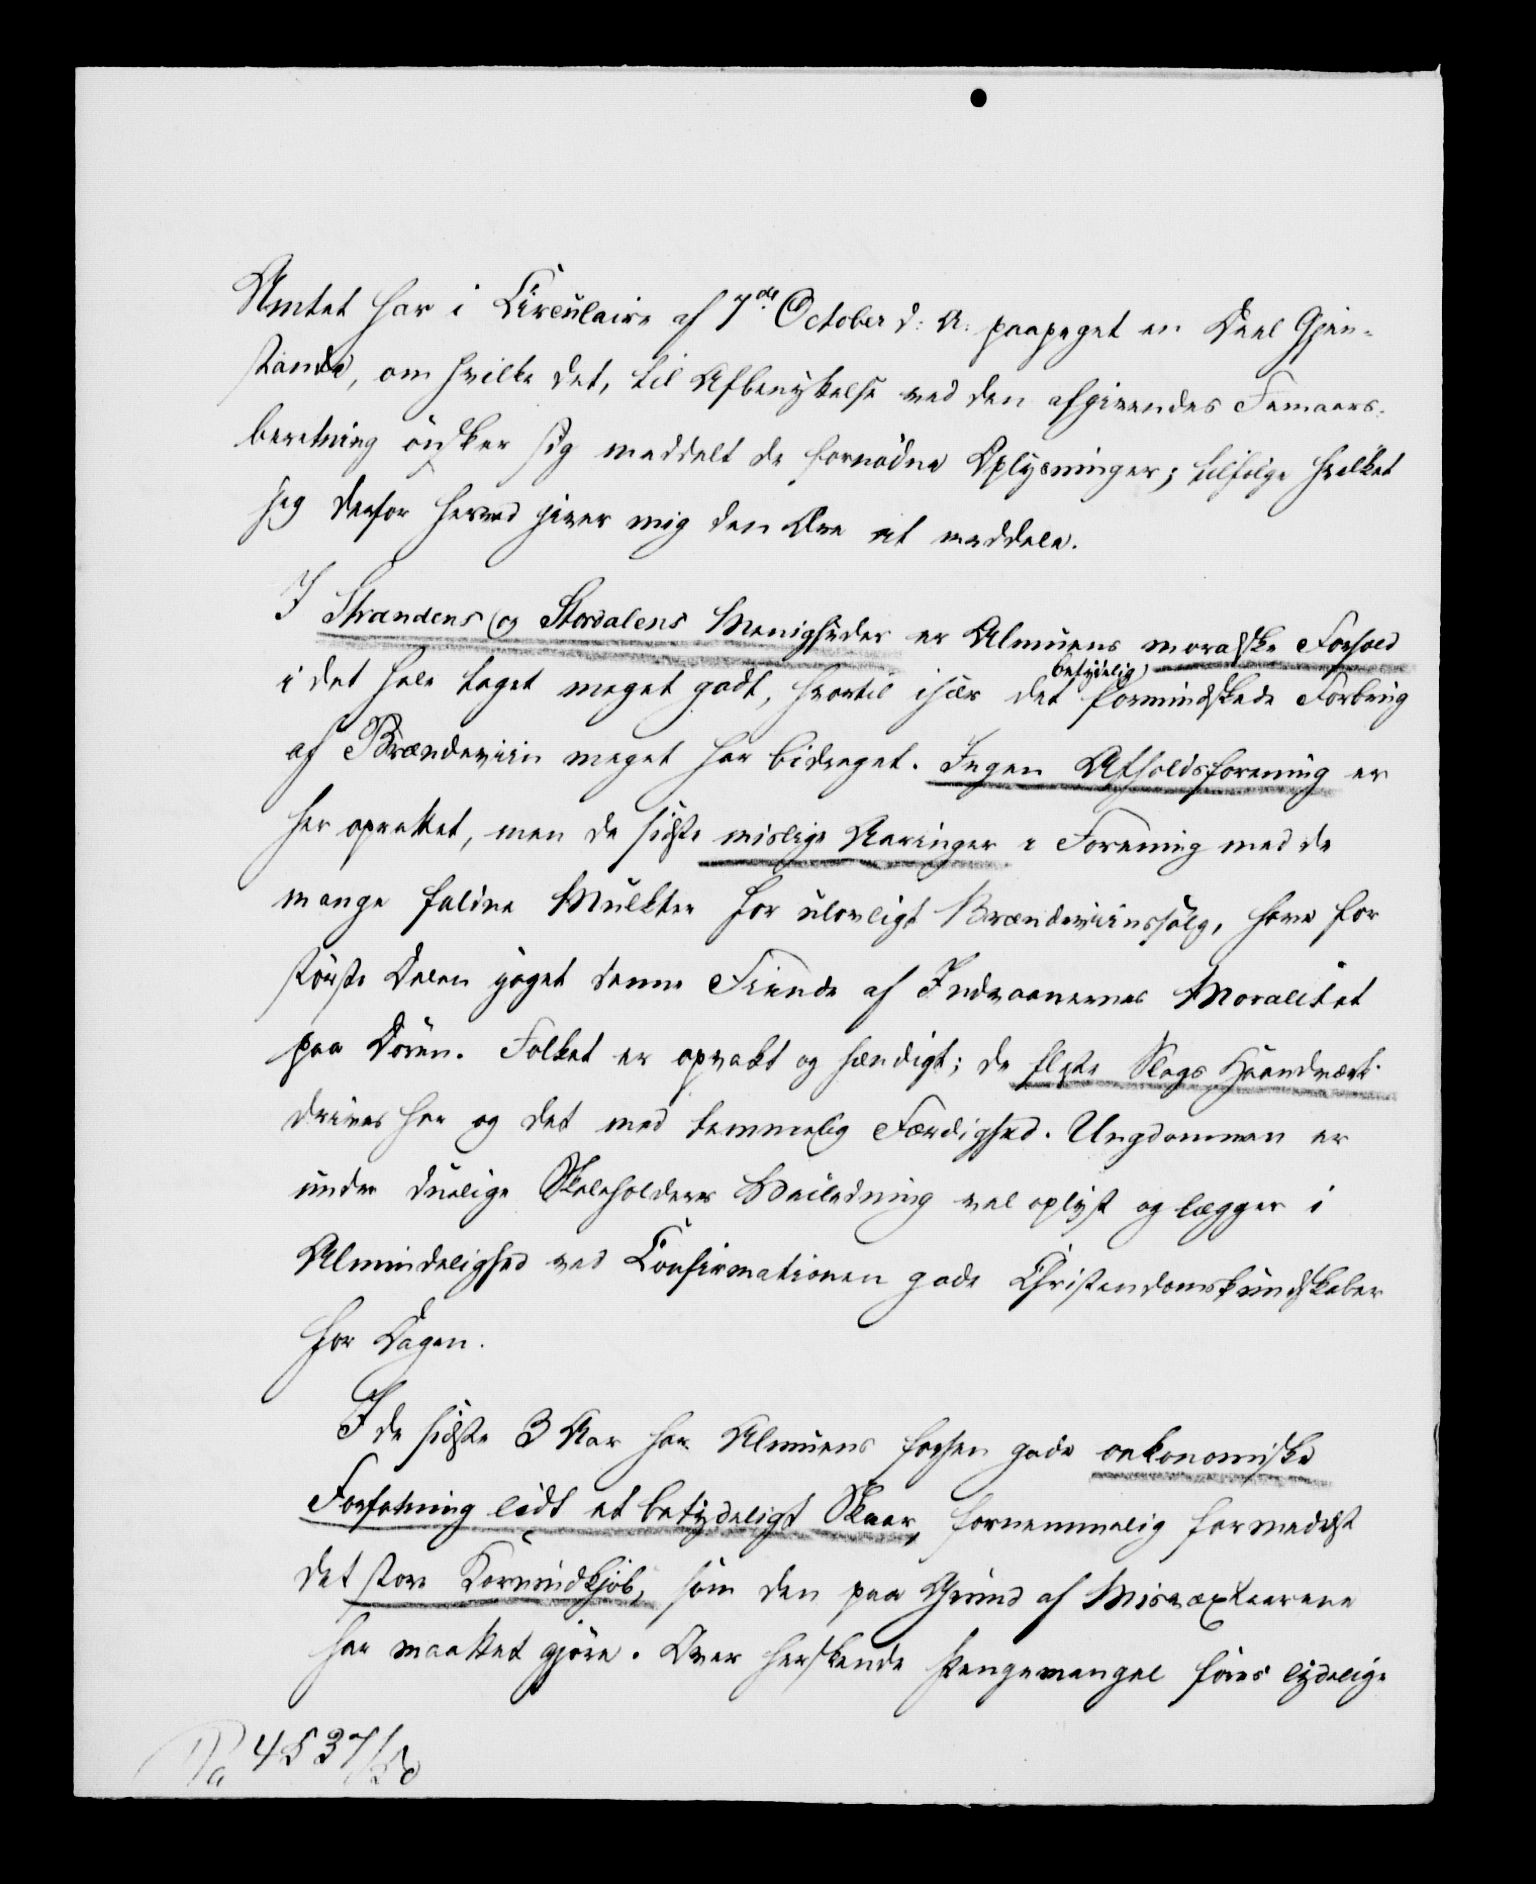 Amtet har i Circulaire af 7de October d: A: paapeget en Deel Gjen-
stande, om hvilke det, til Afbenyttelse ved den afgivendes Femaars-
beretning önsker sig meddelt de fornødne Oplysninger; tilfølge hvilket
jeg derfor herved giver mig den Ære at meddele.
I Strandens og Stordalens Menigheder er Almuens moralske Forhold
betydelig
i det hele taget meget godt, hvortil især det formindskede Forbrug
af Brændeviin meget har bidraget. Ingen Afholdsforening er
her oprettet, men de sidste mislige Aaringer i Forening med de
mange faldne Mulkter for ulovligt Brændeviinssalg, have for
største Delen jaget denne Fiende af Indvaanernes Moralitet
paa Døren. Folket er opvakt og hændigt; de fleste Slags Haandværk
drives her og det med temmelig Færdighed. Ungdommen er
under duelige Skoleholderes Veiledning vel oplyst og lægger i
Almindelighed ved Confirmationen gode Christendomskundskaber
for Dagen.
I de sidste 3 Aar har Almuens forhen gode oekonomiske
Forfatning lidt et betydeligt Skaar, fornemmelig formedelst
det store Kornindkjøb, som den paa Grund af Misvæxtaarene
har maattet gjøre. Over herskende Pengemangel føres lydelige
4537/50